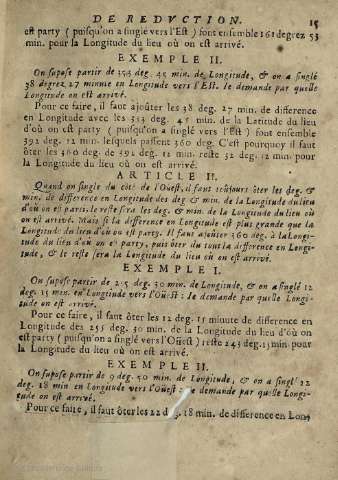 DE REDVCTION. 15
est party ( puisqu'on a singlé vers l'Est ) font ensemble 161 degrez 53
min. pour la Longitude du lieu où on est arrivé.
EXEMPLE II.
On supose partir de 353 deg. 45 min. de Longitude, & on a singlé
38 degrez 27 minute en Longitude vers l'Est. Ie demande par quelle
Longitude on est arrivé.
Pour ce faire, il faut ajoûter les 38 deg. 27 min. de difference
en Longitude avec les 353 deg. 45 min. de la Latitude du lieu
d'où on est party ( puisqu'on a singlé vers l'Est ) font ensemble
392 deg. 12 min. lesquels passent 360 deg. C'est pourquoy il faut
ôter les 360 deg. de 392 deg. 12 min. reste 32 deg. 12 min. pour
la Longitude du lieu où on est arrivé.
ARTICLE II.
Quand on single du côté de l'Oüest, il faut toûjours ôter les deg. &
min. de difference en Longitude des deg & min. de la Longitude du lieu
d'où on est party, le reste sera les deg. & min. de la Longitude du lieu où
on est arrivé. Mais si la difference en Longitude est plus grande que la
Longitude du lieu d'où on est party. Il faut ajoûter 360 deg. à la Longi-
tude du lieu d'où on est party, puis ôter du tout la difference en Longi-
tude, & le reste sera la Longitude du lieu où on est arrivé.
EXEMPLE I.
On supose partir de 255 deg. 30 min. de Longitude, & on a singlé 12
deg. 15 min. en Longitude vers l'Oüest: Ie demande par quelle Longi-
tude on est arrivé.
Pour ce faire, il faut ôter les 12 deg. 15 minute de difference en
Longitude des 255 deg. 30 min. de la Longitude du lieu d'où on
est party ( puisqu'on a singlé vers l'Oüest ) reste 243 deg. 15 min. pour
la Longitude du lieu où on est arrivé.
EXEMPLE II.
On supose partir de 9 deg. 50 min. de Longitude, & on a singlé 22
deg. 18 min en Longitude vers l'Oüest demande par quelle Longi-
tude on est arrivé.
Pour ce faire, il faut ôter les 22 deg. 18 min. de difference en Lon-